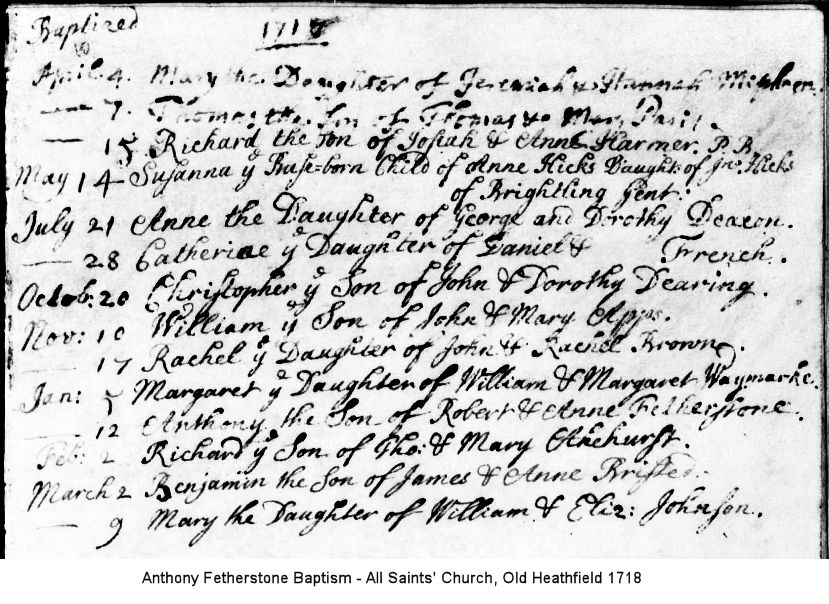 Baptized 1717
April. 4. Mary the Daughter of Jeremiah & Hannah
— 7. Thomas the Son of Thomas & Mary
— 15 Richard the Son of Josiah & Anne Harmer. P. R.
May 14 Susanna ye Base=born Child of Anne Hicks Daught: of Jno. Hicks
of Brightling Gent:
July 21 Anne the Daughter of George and Dorothy Deacon.
— 28 Catherine ye Daughter of Daniel & French.
Octob: 20 Christopher ye Son of John & Dorothy Dearing.
Nov: 10 William ye Son of John & Mary Apps.
— 17 Rachel ye Daughter of John & Rachel Brown.
Jan: 5 Margaret ye Daughter of William & Margaret Waymarke.
— 12 Anthony the Son of Robert & Anne Fetherstone.
Feb: 2 Richard ye Son of Tho: & Mary Akehurst.
March 2 Benjamin the Son of James & Anne Bristed.
— 9 Mary the Daughter of William & Eliz: Johnson.
Anthony Fetherstone Baptism - All Saints' Church, Old Heathfield 1718